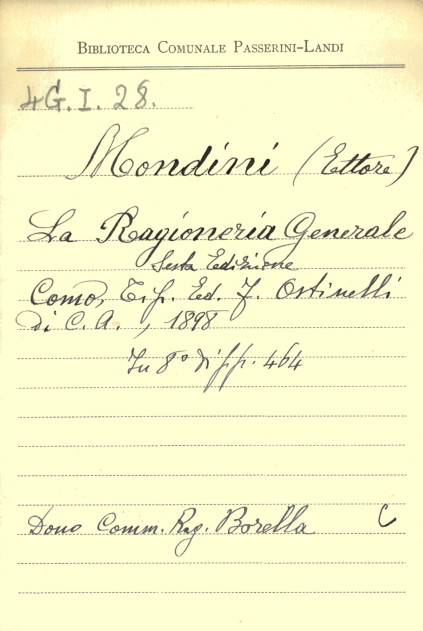 BIBLIOTECA COMUNALE PASSERINI-LANDI
4G. I. 28.
Mondini (Ettore)
La Ragioneria Generale
Sesta Edizione
Como, Tip. Ed. F. Ostinelli
di C. A., 1898
In 8° di pp. 464
Dono Comm. Rag. Borella C